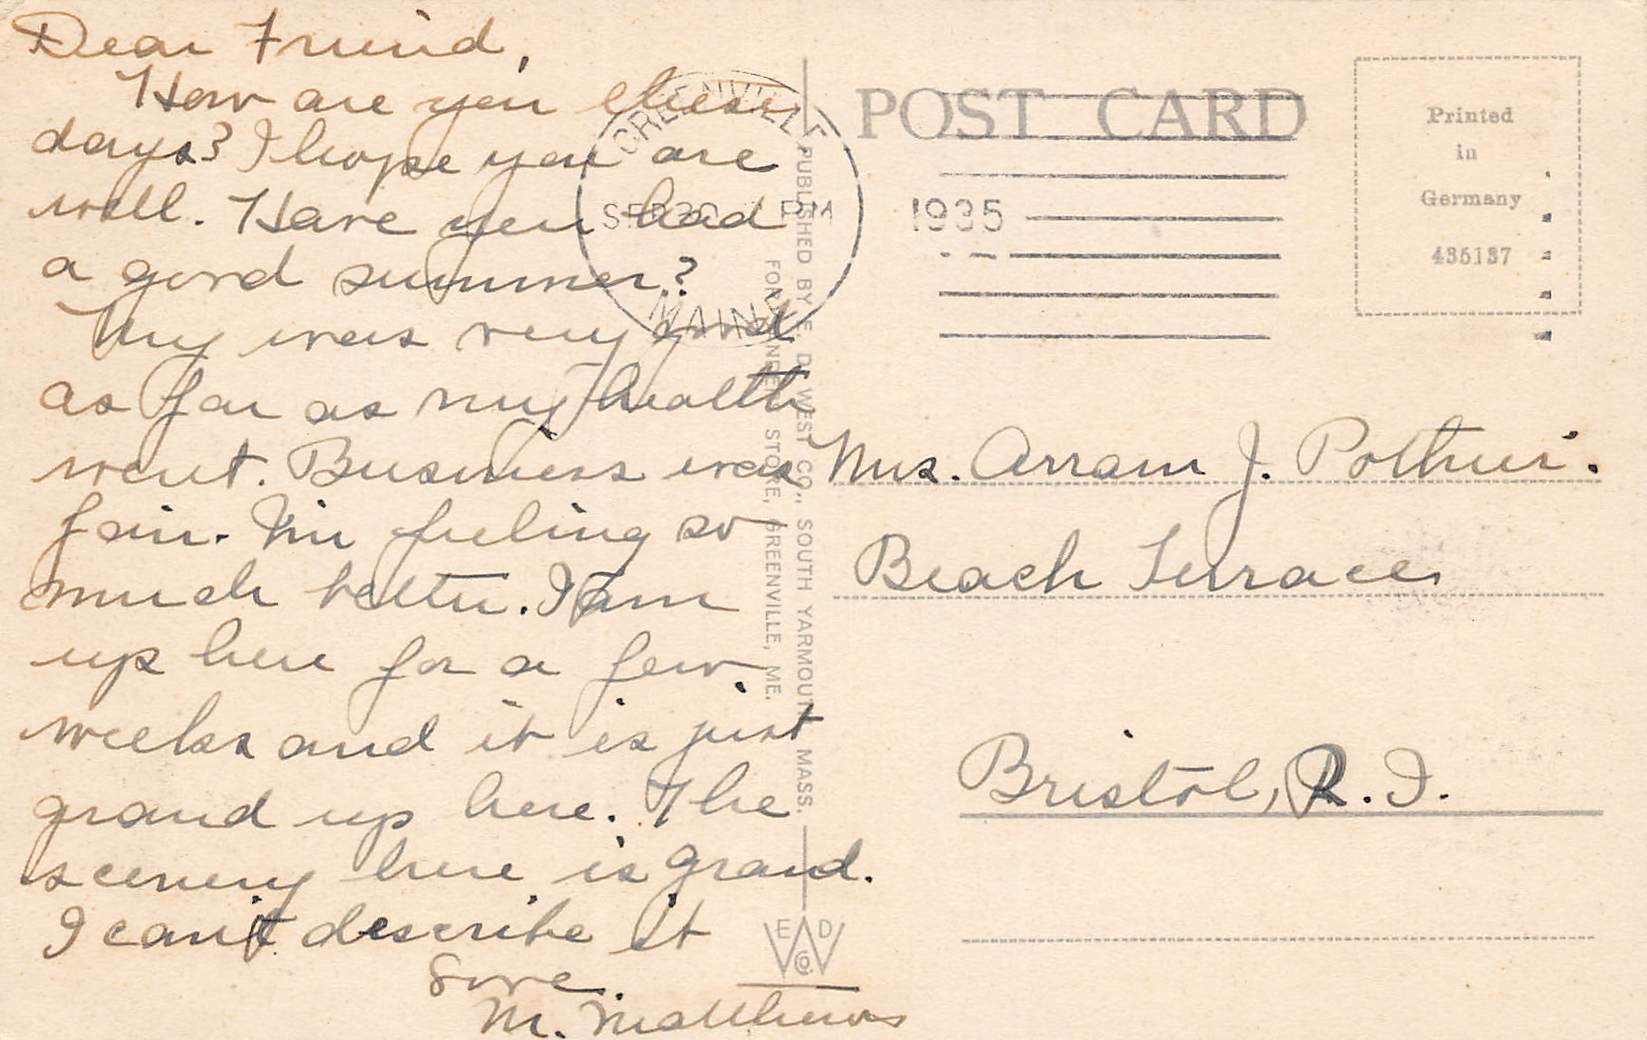 Dear Friend,
How are you these
days? I hope you are
well. Have you had
a good summer?
My was very good
as far as my health
went. Business was
fair. I'm feeling so
much better. I am
up here for a few
weeks and it is just
grand up here. The
scenery here is grand.
I can't describe it
Love.
M. Matthews
GREENVILLE
SEP 30 PM
MAINE
1935
POST CARD
Printed
in
Germany
435137
PUBLISHED BY E. D. WEST CO., SOUTH YARMOUTH, MASS.
STORE, GREENVILLE, ME.
Mrs. Arram J. Pothier.
Beach Terrace
Bristol, R. I.
E D
W Co